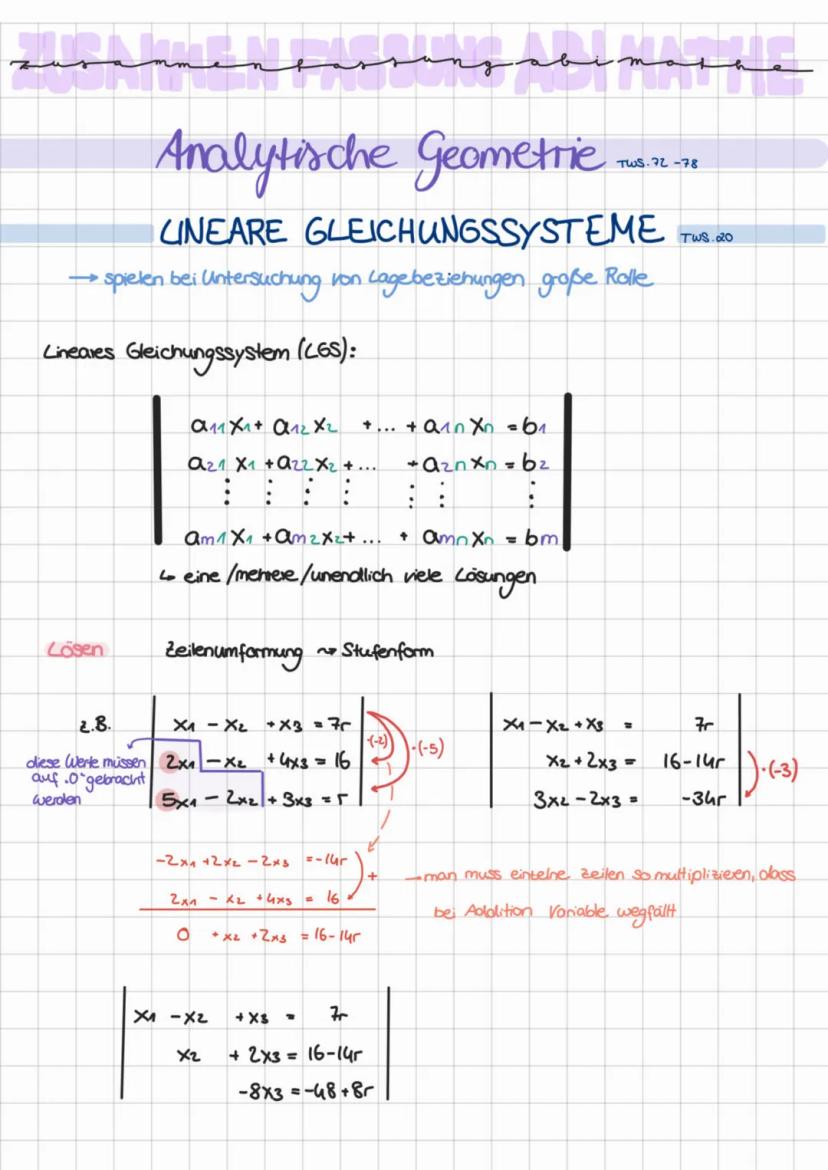 ZUSAMMENFASSUNG ABI MATHE
zusammenfassung abi mathe
Analytische Geometrie TWS.72-78
LINEARE GLEICHUNGSSYSTEME TWS.20
→ spielen bei Untersuchung von Lagebeziehungen große Rolle
Lineares Gleichungssystem (LGS):
a11 x1 + a12 x2 + ... + a1n xn = b1
a21 x1 + a22 x2 + ... + a2n xn = b2
⋮ ⋮ ⋮ ⋮ ⋮ ⋮ ⋮
am1 x1 + am2 x2 + ... + amn xn = bm
↳ eine/mehrere/unendlich viele Lösungen
Lösen Zeilenumformung ⤳ Stufenform
z.B.
x1 - x2 + x3 = 7r
2x1 - x2 + 4x3 = 16
5x1 - 2x2 + 3x3 = r
·(-2)
·(-5)
diese Werte müssen
auf "0" gebracht
werden
x1 - x2 + x3 = 7r
x2 + 2x3 = 16-14r
3x2 - 2x3 = -34r
·(-3)
-2x1 + 2x2 - 2x3 = -14r
2x1 - x2 + 4x3 = 16
+
0 + x2 + 2x3 = 16-14r
→ man muss einzelne Zeilen so multiplizieren, dass
bei Addition Variable wegfällt
x1 - x2 + x3 = 7r
x2 + 2x3 = 16-14r
-8x3 = -48+8r